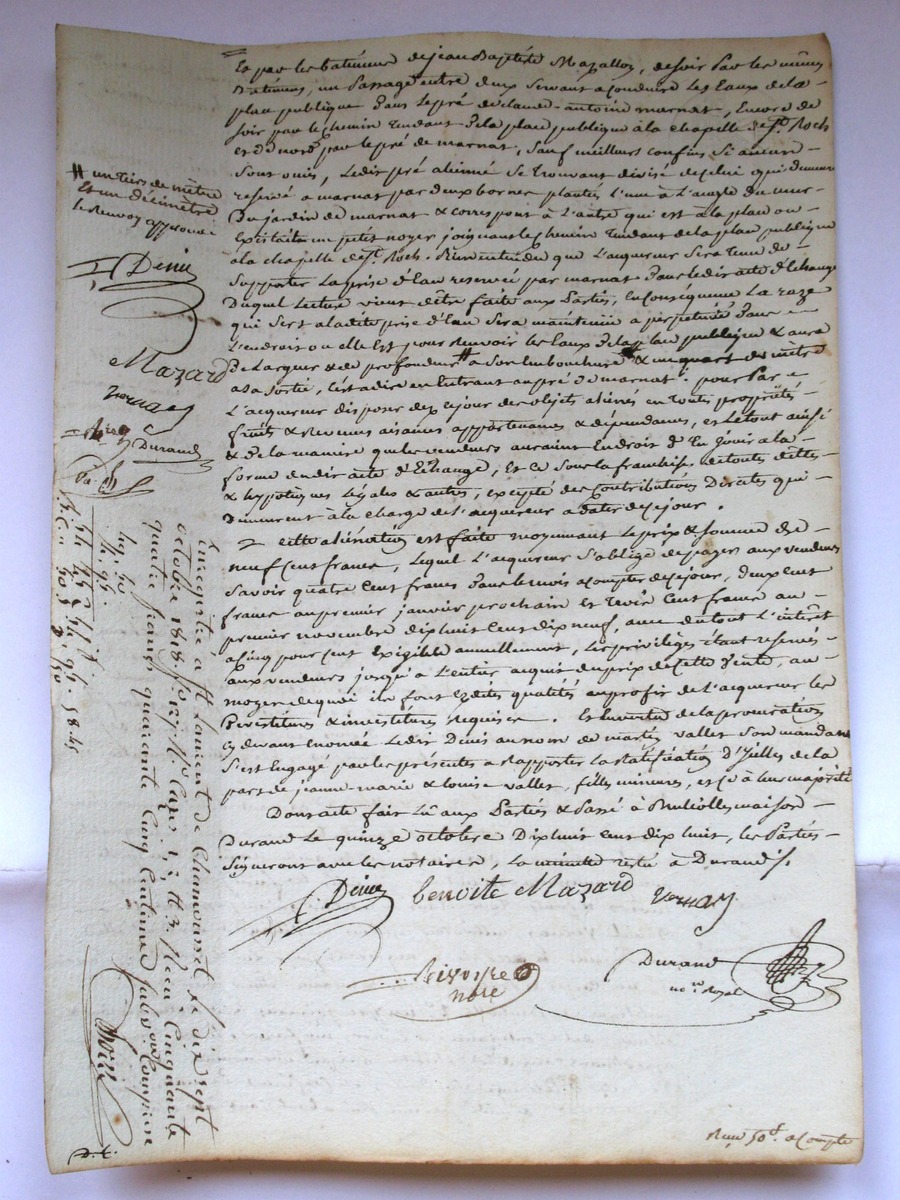 Et par les batimens de jean Baptiste Mazallon, de soir Par les mêmes
Batimens, un Passage entre deux Servant a Conduire Les Eaux de la
place publique dans le pré de claude-antoine marnat, Encore de
soir par le chemin tendant de la place publique à la chapelle de St. Roch
et de nord par le pré de marnat, Sauf meilleurs confins Si aucuns
Sont omis, Ledit pré aliéné se trouvant divisé de celui qui demeure
reservé a marnat par deux bornes plantées l'une à L'angle du mur
Du jardin de marnat & correspont à L'autre qui est à la place ou
Existait un petit noyer joignant le chemin tendant de la place publique
à la chapelle de St. Roch. Bien entendu que L'acquereur Sera tenu de
Supporter La prise d'Eau reservée par marnat Dans le dit acte d'Echange
Duquel Lecture vient d'être faite aux Parties, En Conséquence La raze
qui Sert a ladite prise d'Eau Sera maintenue a perpetuité Dans
L'endroit ou elle Est pour Recevoir les Eaux de la place publique & aura
De Largeur & de profondeur # a Son Embouchure & un quart de mètre
a Sa Sortie, C'est a dire en Entrant au pré de marnat. pour Par
L'acquereur disposer de ce jour des objets aliénés en toute propriété
fruits & Revenus aisances appartenances & dépendances, et le tout ainsi
& de la maniere que les vendeurs auraient Endroit d'En Jouir a la
forme du dit acte d'Echange, Et Ce Sous la franchise de toutes dettes
& hypotèques Légales & autres, excepté des Contributions Directes qui
Demeurent à la charge de l'acquereur a Dater de ce jour.
Cette aliénation est faite moyennant Le prix & Somme de
neuf Cent francs, Lequel L'acquereur S'oblige de payer aux vendeurs
Savoir quatre Cent francs Dans le mois a Compter de ce jour, deux Cent
francs au premier janvier prochain Et trois Cent francs au
premier novembre dix huit Cent dix neuf, avec du tout L'intérêt
a Cinq pour Cent Exigible annuellement, Les privilèges étant reservés
aux vendeurs jusqu'à L'entier acquit du prix de Cette Vente, au
moyen de quoi ils font Esdites qualités au profit de L'acquereur les
Devestitures & investitures Requises. Et En vertu de la procuration
Cy devant Enoncée Le dit Denis au nom de martin vallet Son mandant
S'est Engagé par les présentes a Rapporter La Ratification d'Icelles de la
part de jeanne-marie & Louise vallet, filles mineures, et ce à leur majorité
Dont acte fait Lû aux Parties & Passé à Brullioles maison
Durand Le quinze octobre Dix huit Cent dix huit, les Parties
Signeront avec les notaires, La minute restée à Durand
Denis benoite Mazard vernay
Rivoyre
nore
Durand
nre Royal
Reçu 50 a Compte
# un tiers de mètre
Et un décimètre
le Renvoy approuvé
Denis
Mazard
vernay
Durand
Enregistré a St Laurent de Chamousset Le dix sept
octobre 1818. Reçu Cinquante
quatre francs quarante Cinq Centimes Subvon Comprise